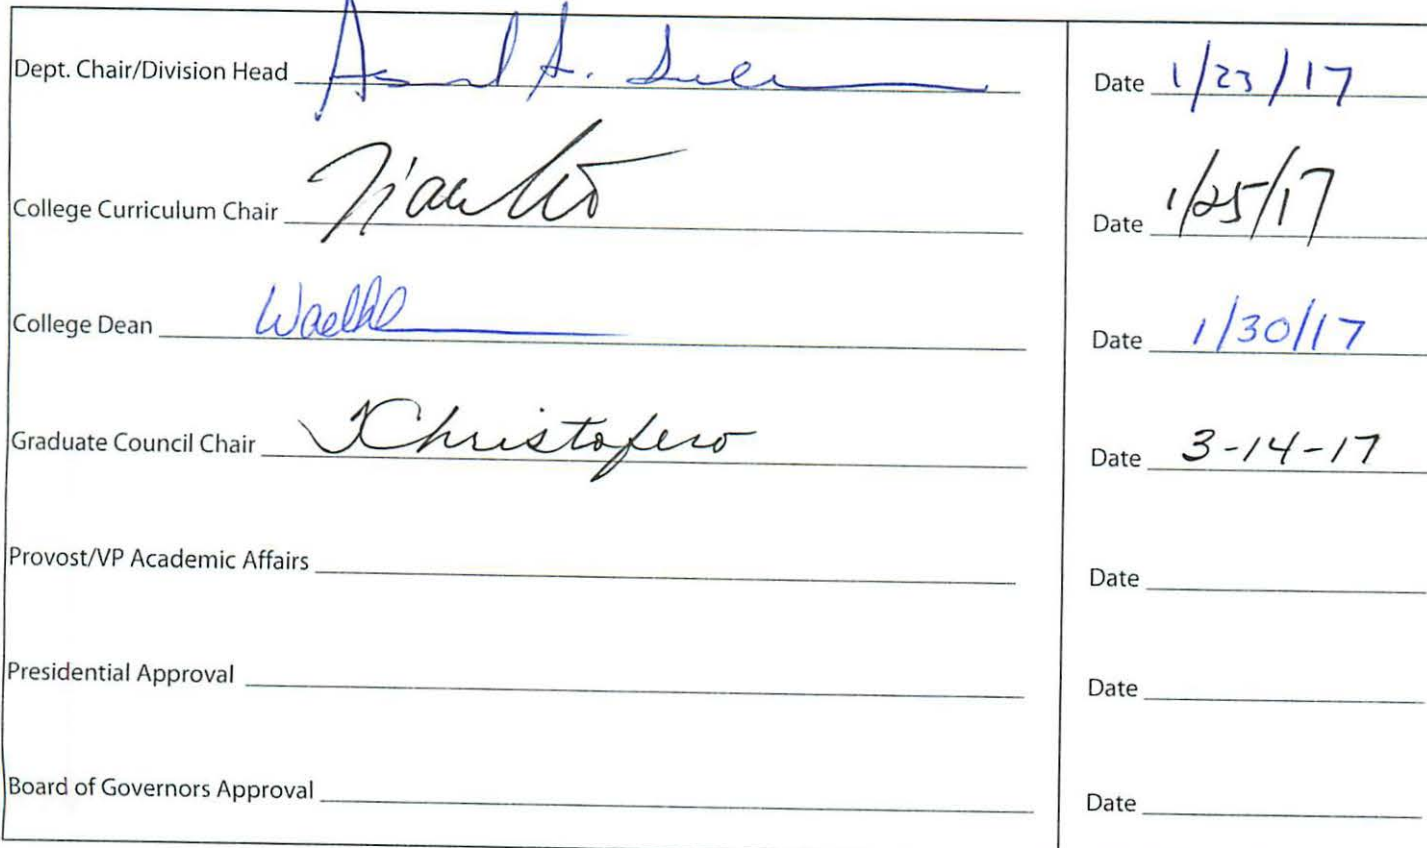 Dept. Chair/Division Head Date 1/23/17
College Curriculum Chair Date 1/25/17
College Dean Date 1/30/17
Graduate Council Chair Christofero Date 3-14-17
Provost/VP Academic Affairs Date
Presidential Approval Date
Board of Governors Approval Date